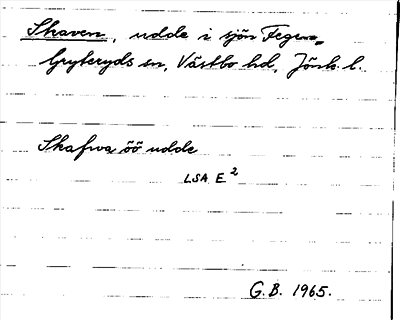 Skaven, udde i sjön Fegen,
Gryteryds sn, Västbo hd, Jönk. l.
Skafwa öö udde
LSA E²
G.B. 1965.